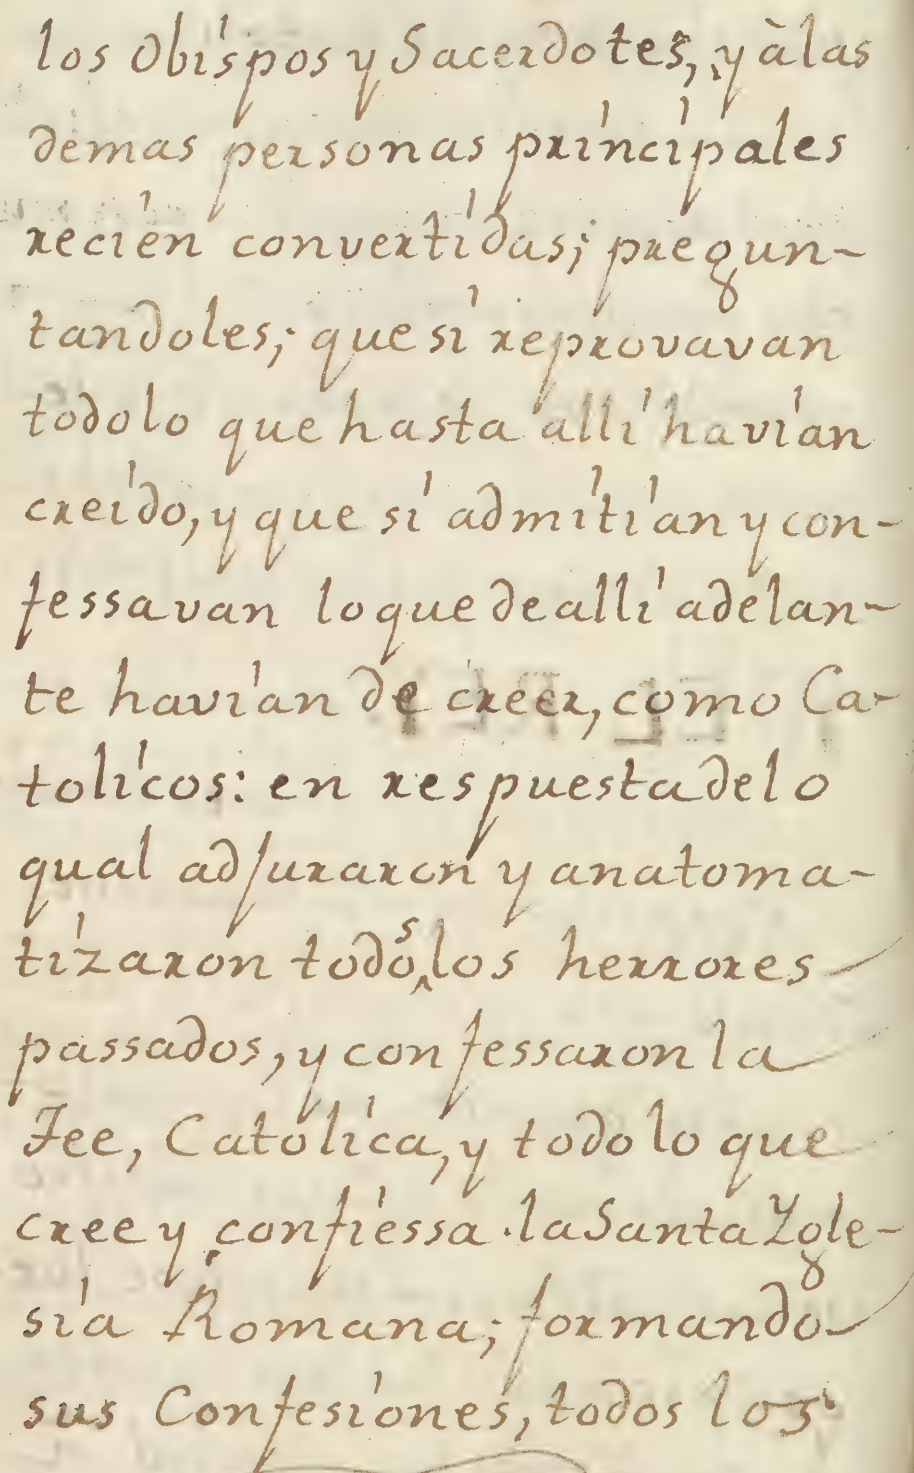 los Obispos y Sacerdotes, y à las
demas personas principales
recien convertidas; pregun-
tandoles; que si reprovavan
todo lo que hasta alli havian
creido, y que si admitian y con-
fessavan lo que de alli adelan-
te havian de creer, como Ca-
tolicos: en respuesta de lo
qual adjuraron y anatoma-
tizaron todos los herrores
passados, y confessaron la
Fee, Catolica, y todo lo que
cree y confiessa la Santa Ygle-
sia Romana; formando
sus Confesiones, todos los